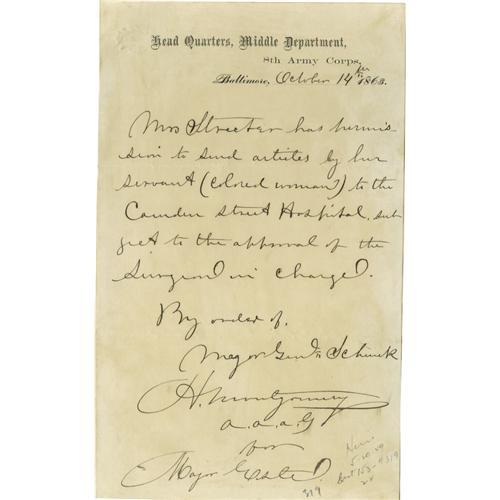 Head Quarters, Middle Department,
8th Army Corps,
Baltimore, October 14th 1863.
Mrs Streeter has permis
sion to send articles by her
servant (colored woman) to the
Camden Street Hospital, sub
ject to the approval of the
Surgeon in charge.
By order of.
Major Genl Schenck
H. Montgomery
a.a.a.G
for
Major
319